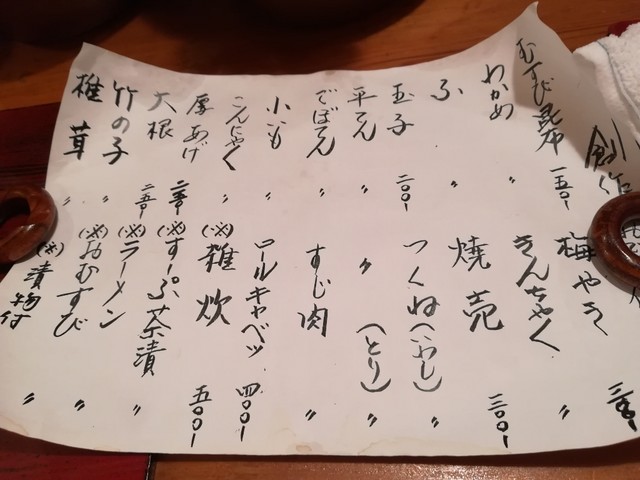 創作
むすび昆布 一五〇-
わかめ 〃
ふ 〃
玉子 二〇〇-
平てん 〃
ごぼてん 〃
小いも 〃
こんにゃく 〃
厚あげ
大根 二五〇-
竹の子 〃
椎茸 〃
梅やき
きんちゃく 〃
焼売 三〇〇-
つくね(いわし) 〃
〃(とり) 〃
すじ肉 〃
ロールキャベツ 四〇〇-
(※)雑炊 五〇〇-
(※)すーぷ茶漬 〃
(※)ラーメン 〃
(※)おむすび 〃
(※)漬物付